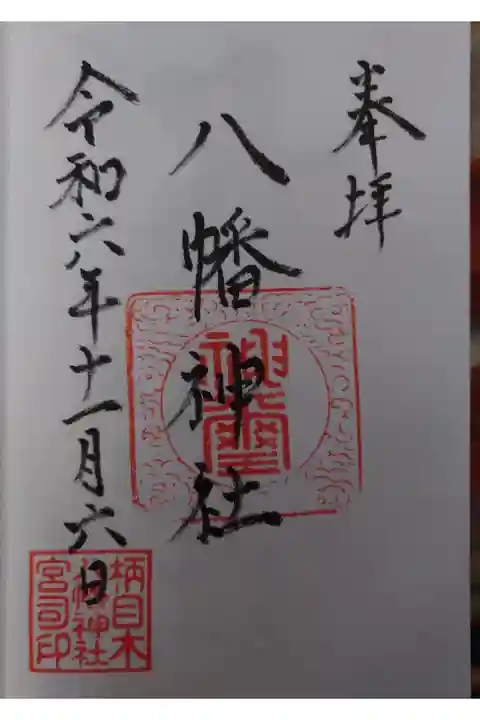 奉拝
八幡神社
神璽
令和六年十一月六日
柄目木
八幡神社
宮司印